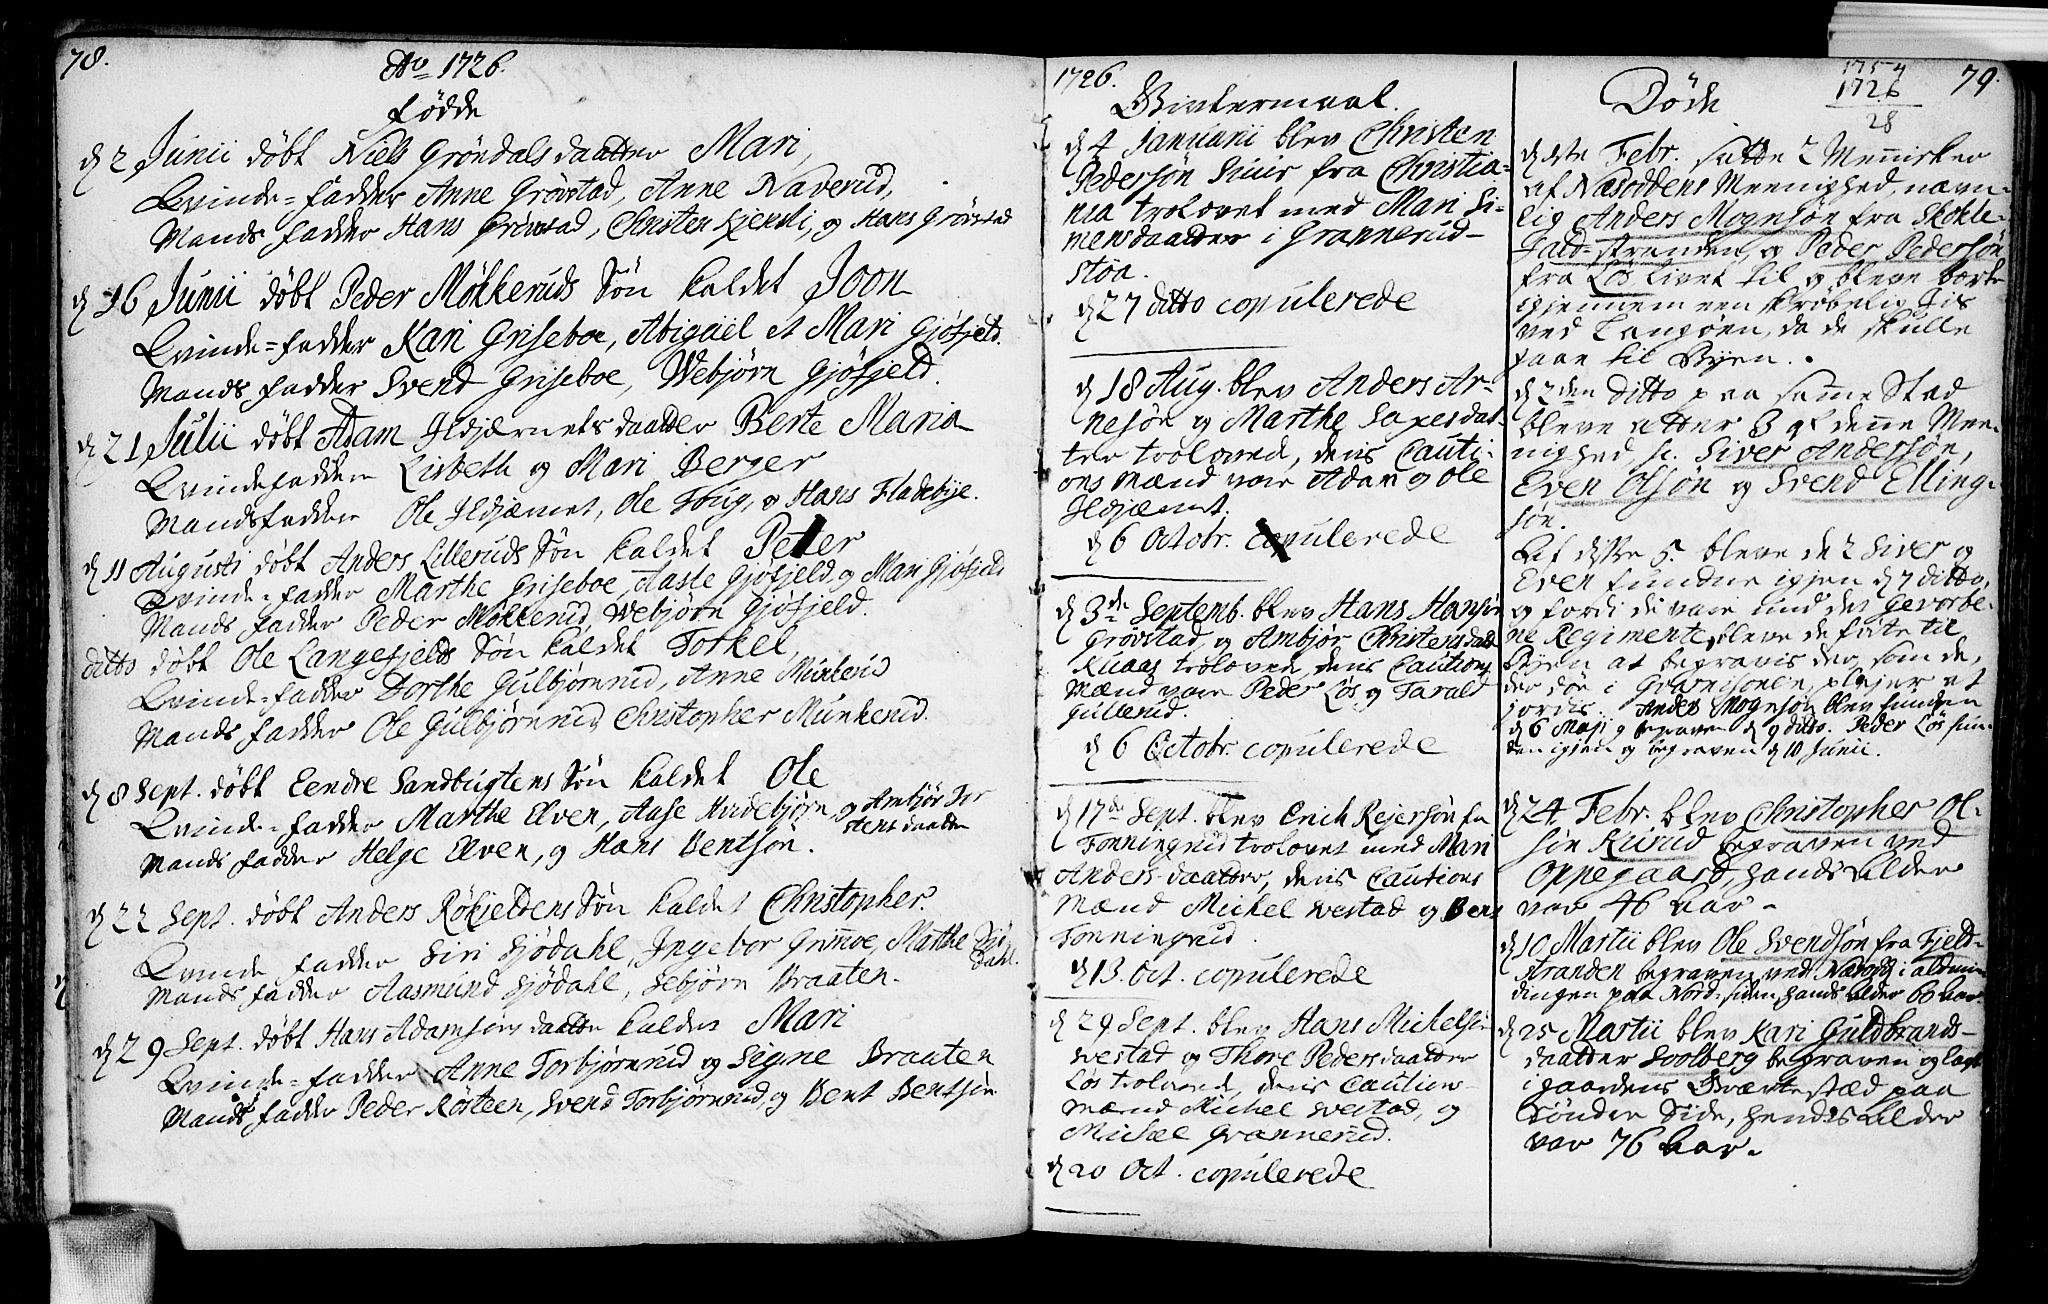 78.
Ao 1726.
fødde
d 2 Junii døbt Niels Grøndals daatter Mari,
Qvinde=fadder Anne Grøvstad, Anne Naverud,
Mands fadder Hans Grøvstad, Christen Kjensli, og Hans Grøvstad
d 16 Junii døbt Peder Møkkeruds Søn kaldet Joon
Qvinde=fadder Kari Griseboe, Abigaël et Mari Gjøfjeld.
Mands fadder Svend Griseboe, Webjørn Gjøfjeld.
d 21 Julii døbt Adam Ildjærnets daatter Berte Maria
Qvindefadder Lisbeth og Mari Berger
Mandsfadder Ole Ildjærnet, Ole Toug, og Hans Fladebye.
d 11 Augusti døbt Anders Lilleruds Søn kaldet Peder
Qvinde=fadder Marthe Griseboe, Aaste Gjøfjeld, og Mari Gjøfjeld
Mands fadder Peder Møkkerud, Webjørn Gjøfjeld.
ditto døbt Ole Langefjelds Søn kaldet Torkel,
Qvinde=fadder Dorthe Gulbjørnrud, Anne Münkerud
Mands fadder Ole Gulbjørnrud, Christopher Münkerud.
d 8 Sept. døbt Eendre Sandbugtens Søn kaldet Ole
Qvinde=fadder Marthe Elven, Aase Hvidebjørn, og Ambjør Tor
stens daatter
Mands fadder Helge Elven, og Hans Bentsøn.
d 22 Sept. døbt Anders Røkjeldens Søn kaldet Christopher.
Qvinde fadder Siri Sjødahl, Ingebor Grimoe, Marthe Sjø
dahl.
Mands fadder Aasmund Sjødahl, Sebjørn Braaten.
d 29 Sept. døbt Hans Adamsøns daatter kaldet Mari
Qvinde=fadder Anne Torbjørnrud og Signe Braaten
Mands fadder Peder Røsteen, Svend Torbjørnrud, og Bent Bentsøn
1726.
Givtermaal.
d 4 Januarii blev Christen
Pedersøn Sinir fra Christia=
nia trolovet med Mari Si=
mensdaatter i Grannerud=
støa.
d 27 ditto copulerede
d 18 Aug. blev Anders Ar=
nesøn og Marthe Saxesdat=
ter trolovede, deris Cauti=
ons Mænd vare Adam og Ole
Ildjærnet.
d 6 Octobr. copulerede
d 3de Septemb. blev Hans Hansøn
Grøvstad, og Ambjør Christensdaat
Knaas trolovede, deris Cautions
Mænd vare Peder Løs og Tarald
Gullerud.
d 6 Octobr. copulerede
d 17de Sept. blev Erich Rejersøn fra
Tonningrud trolovet med Mari
Anders daatter, deris Cautions
Mænd Mickel Svestad og Bent
Tonningrud.
d 13. Oct. copulerede
d 29 Sept. blev Hans Michelsøn
Svestad og Thore Pedersdaatter
Løs trolovede, deris Cautions
Mænd Michel Svestad, og
Michel Grannerud.
d 20 Oct. copulerede
Døde
1754
1726
28
79.
d 1ste Febr. satte 2 Mennisker
af Næsoddens Meenighed, nævn=
lig Anders Mognsøn fra Skokle=
fald=stranden, og Peder Pedersøn
fra Løs Livet til og bleve borte
igjennem een skrøbelig Iis
ved Langøen, da de skulle
faae til Byen.
d 2den ditto paa samme Stad
bleve atter 3 af denne Mee=
nighed sc. Siver Andersøn,
Even Olsøn og Svend Elling=
søn.
Af disse 5. bleve de 2 Siver og
Even fundne igjen d 7 ditto,
og fordi de vare und det Gevorbe=
ne Regimente, bleve de førte til
Byen at begravis der, som de,
der døe i Guarnisonen, plejer at
jordis. Anders Mognsøn blev funden
d 6 Maji og begraven d 9 ditto. Peder Løs fun=
den igjen og begraven d 10 Junii.
d 24 Febr. blev Christopher Ol=
søn Kürud begraven ved
Oppegaard, hands Alder
var 46 Aar.
d 10 Martii blev Ole Svendsøn fra Fjeld=
stranden begraven ved Næsodd i almin
dingen paa Nord=siden, hands Alder 60 Aar.
d 25 Martii blev Kari Guldbrands=
daatter Soolberg begraven og lagt
i gaardens Qværkestæd paa
Søndre Side, hendes Alder
var 76 Aar.